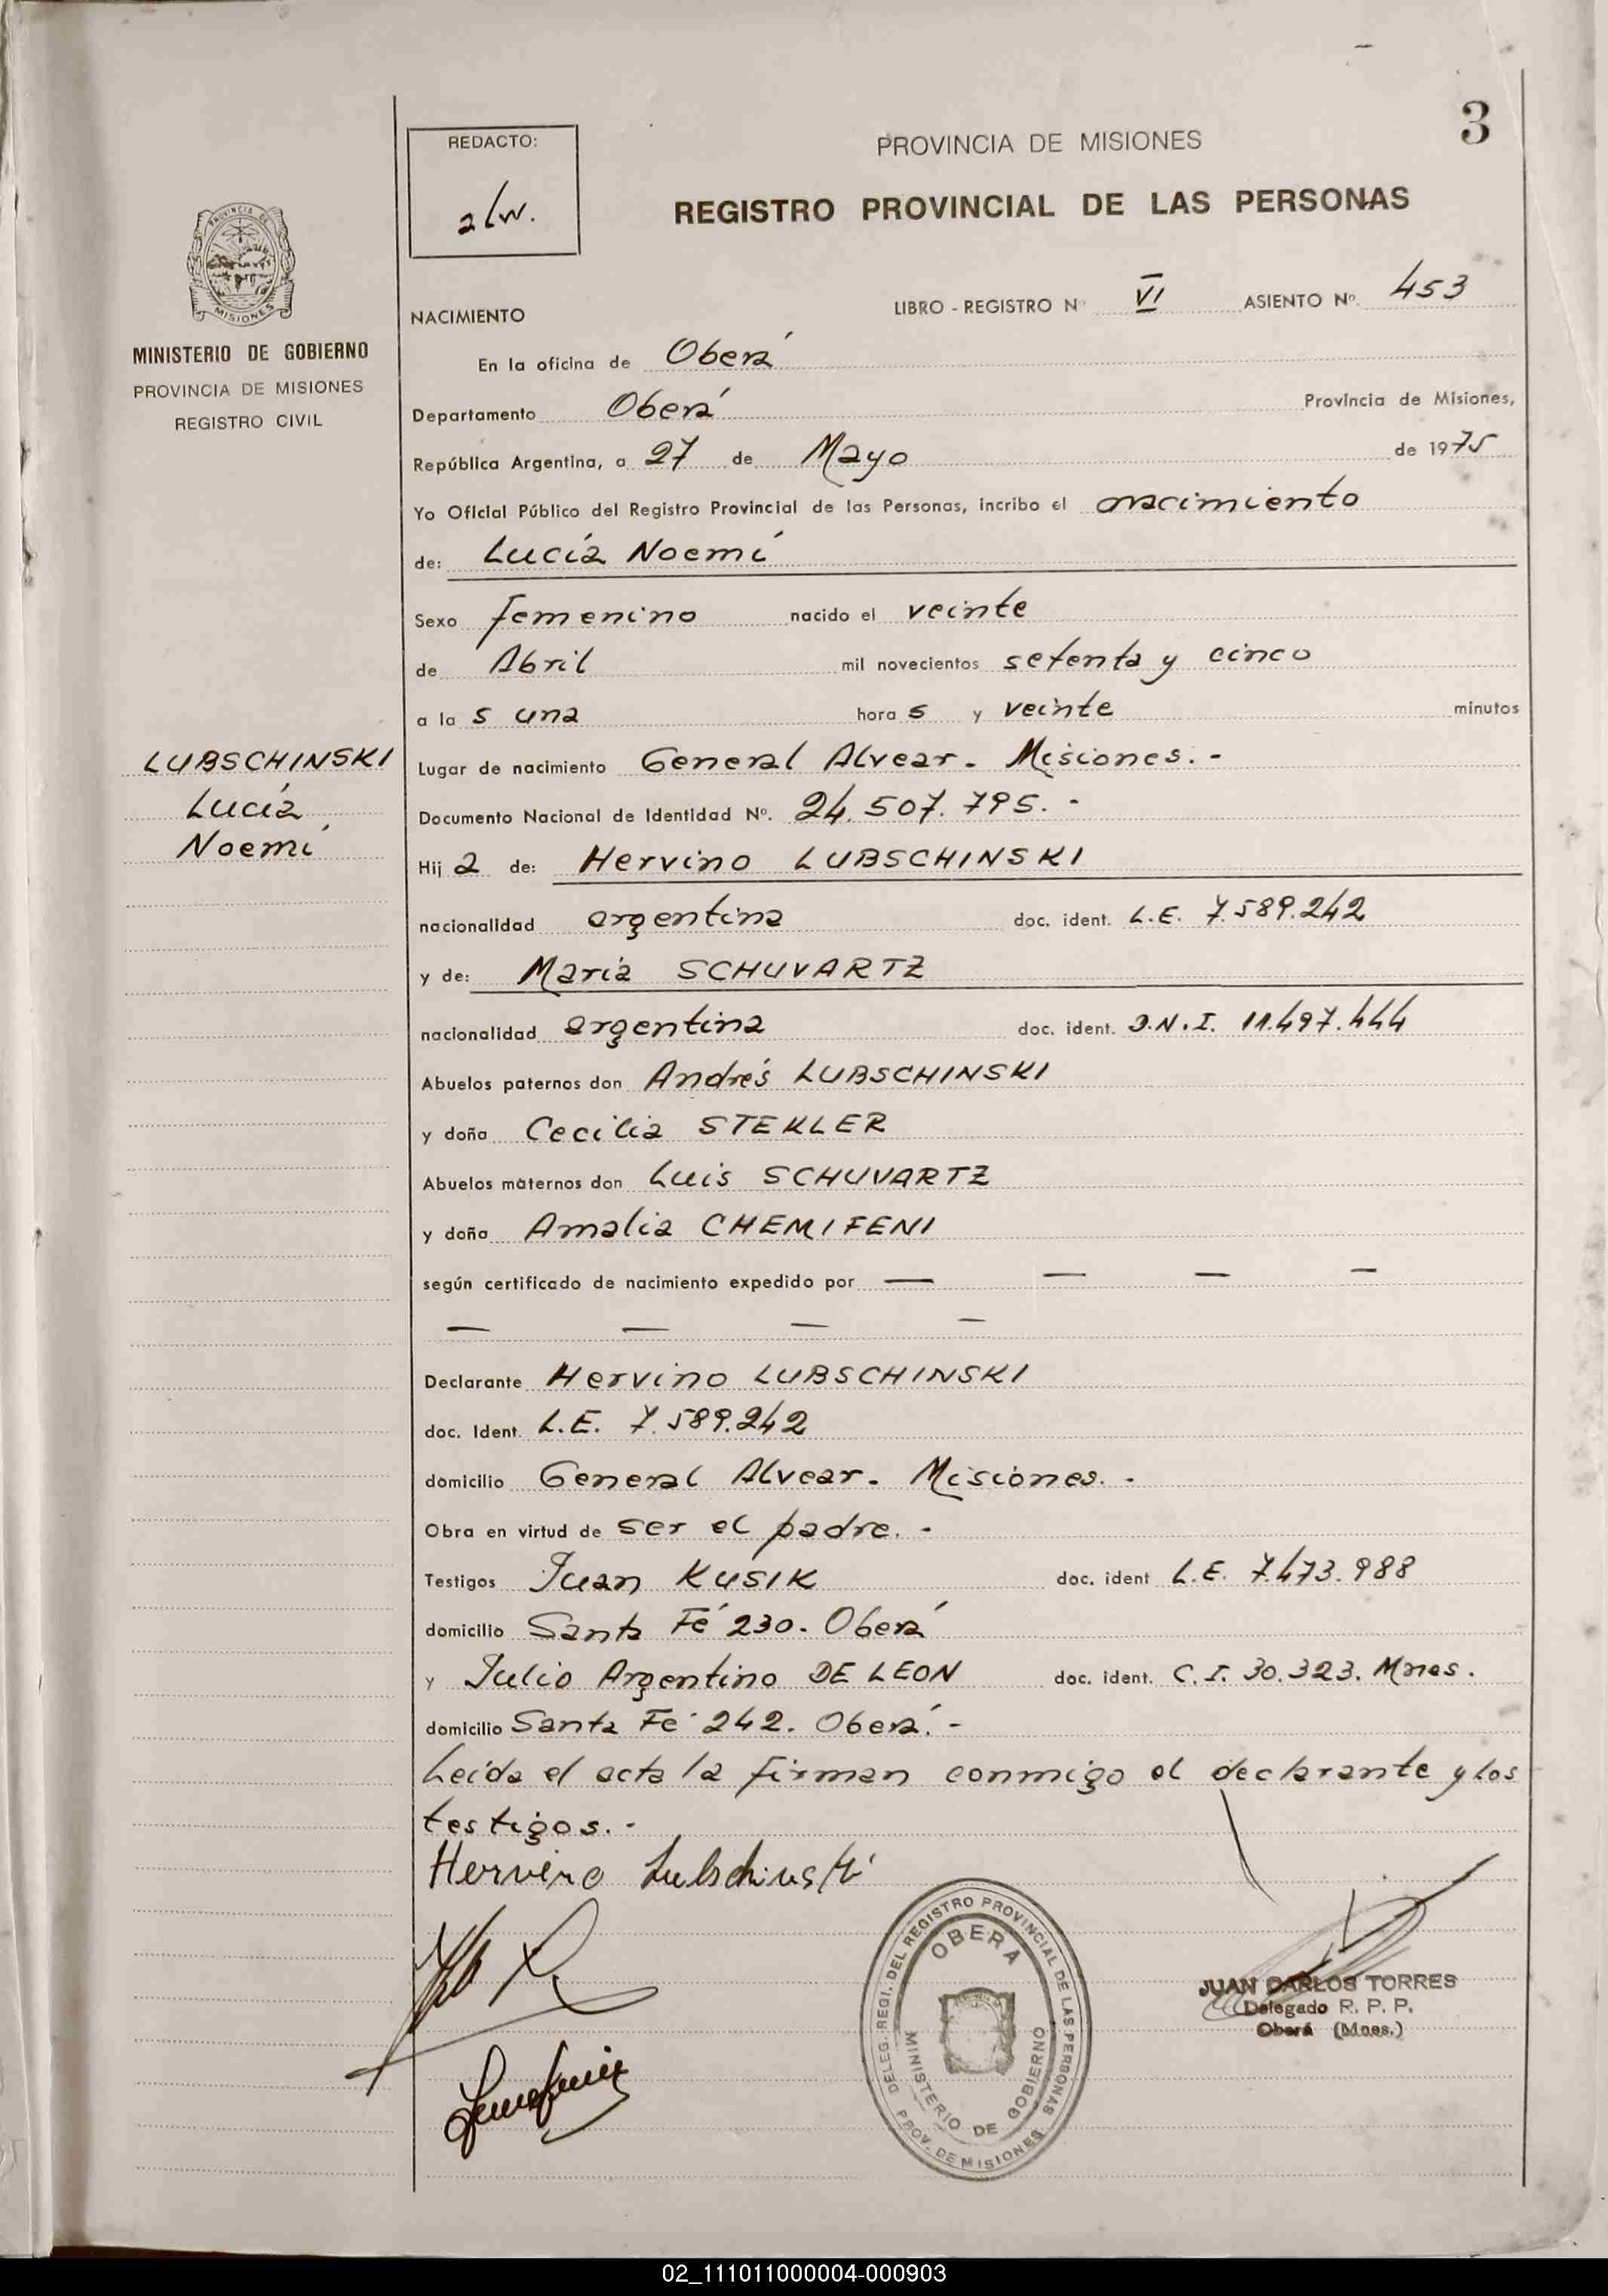 3
REDACTO:
alw.
PROVINCIA DE MISIONES
REGISTRO PROVINCIAL DE LAS PERSONAS
PROVINCIA DE
MISIONES
MINISTERIO DE GOBIERNO
PROVINCIA DE MISIONES
REGISTRO CIVIL
LIBRO - REGISTRO Nº VI ASIENTO Nº. 453
NACIMIENTO
En la oficina de Oberá
Departamento Oberá Provincia de Misiones,
República Argentina, a 27 de Mayo de 1975
Yo Oficial Público del Registro Provincial de las Personas, incribo el nacimiento
de: Lucía Noemí
Sexo femenino nacido el veinte
de Abril mil novecientos setenta y cinco
a la s una hora s y veinte minutos
LUBSCHINSKI
Lucía
Noemí
Lugar de nacimiento General Alvear. Misiones. -
Documento Nacional de Identidad Nº. 24.507.795. -
Hij a de: Hervino LUBSCHINSKI
nacionalidad argentina doc. ident. L.E. 7.589.242
y de: María SCHUVARTZ
nacionalidad argentina doc. ident. D.N.I. 11.497.444
Abuelos paternos don Andrés LUBSCHINSKI
y doña Cecilia STEKLER
Abuelos maternos don Luis SCHUVARTZ
y doña Amalia CHEMIFENI
según certificado de nacimiento expedido por — — — —
— — — —
Declarante Hervino LUBSCHINSKI
doc. Ident. L.E. 7.589.242
domicilio General Alvear. Misiones. -
Obra en virtud de ser el padre. -
Testigos Juan KUSIK doc. ident L.E. 7.473.988
domicilio Santa Fé 230. Oberá
y Julio Argentino DE LEON doc. ident. C.I. 30.323. Mnes.
domicilio Santa Fé 242. Oberá. -
Leída el acta la firman conmigo el declarante y los
testigos. -
Hervino Lubschinski
DELEG. REGI. DEL REGISTRO PROVINCIAL DE LAS PERSONAS
OBERA
MINISTERIO DE GOBIERNO
PROV. DE MISIONES
JUAN CARLOS TORRES
Delegado R. P. P.
Oberá (Mnes.)
02_111011000004-000903